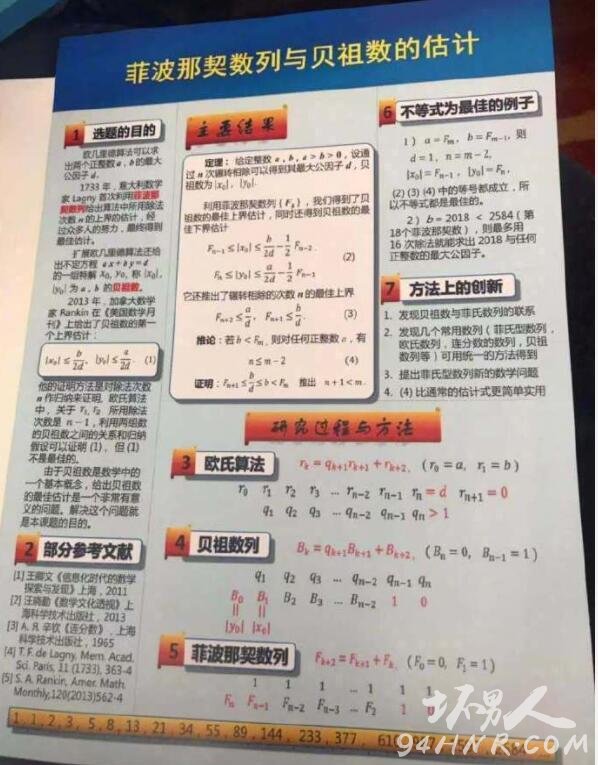 菲波那契数列与贝祖数的估计
1 选题的目的
欧几里德算法可以求
出两个正整数a,b的最大
公因子d.
1733年,意大利数学
家Lagny首次利用菲波那
契数列给出算法中所用除法
次数n的上界的估计,经
过众多人的努力,最终得到
最佳估计。
扩展欧几里德算法还给
出不定方程 ax+by=d
的一组特解 x₀, y₀, 称|x₀|,
|y₀|为a,b的贝祖数。
2013年,加拿大数学
家Rankin在《美国数学月
刊》上给出了贝祖数的第一
个上界估计:
|x₀| ≤ b/2d, |y₀| ≤ a/2d. (1)
他的证明方法是对除法次数
n作归纳来证明,欧氏算法
中,关于 r₁, r₂ 所用除法
次数是 n−1,利用两组数
的贝祖数之间的关系和归纳
假设可以证明(1),但(1)
不是最佳的。
由于贝祖数是数学中的
一个基本概念,给出贝祖数
的最佳估计是一个非常有意
义的问题。解决这个问题就
是本课题的目的。
2 部分参考文献
[1] 王卿文《信息化时代的数学
探索与发现》上海,2011
[2] 汪晓勤《数学文化透视》上
海科学技术出版社,2013
[3] А. Я. 辛钦《连分数》,上海
科学技术出版社,1965
[4] T. F. de Lagny, Mem. Acad.
Sci. Paris, 11 (1733), 363-4
[5] S. A. Rankin, Amer. Math.
Monthly,120(2013)562-4
主要结果
定理: 给定整数 a, b, a > b > 0, 设通
过n次辗转相除可以得到其最大公因子d,贝
祖数为|x₀|, |y₀|.
利用菲波那契数列{Fₖ},我们得到了贝
祖数的最佳上界估计,同时还得到贝祖数的最
佳下界估计
Fₙ₋₁ ≤ |x₀| ≤ b/2d − 1/2 Fₙ₋₂.
(2)
Fₙ ≤ |y₀| ≤ a/2d − 1/2 Fₙ₋₁
它还推出了辗转相除的次数n的最佳上界
Fₙ₊₂ ≤ a/d, Fₙ₊₁ ≤ b/d. (3)
推论: 若 b < Fₘ, 则对任何正整数a,有
n ≤ m − 2 (4)
证明: Fₙ₊₁ ≤ b/d ≤ b < Fₘ 推出 n + 1 < m.
6 不等式为最佳的例子
1) a = Fₘ, b = Fₘ₋₁, 则
d = 1, n = m − 2,
|x₀| = Fₙ₋₁, |y₀| = Fₙ,
(2) (3) (4) 中的等号都成立,所
以不等式是最佳的。
2) b = 2018 < 2584 (第
18个菲波那契数),则最多用
16次除法就能求出2018与任何
正整数的最大公因子。
7 方法上的创新
1. 发现贝祖数与菲氏数列的联系
2. 发现几个常用数列(菲氏型数列,
欧氏数列,连分数的数列,贝祖
数列等)可用统一的方法得到
3. 提出菲氏型数列新的数学问题
4. (4) 比通常的估计式更简单实用
研究过程与方法
3 欧氏算法 rₖ = qₖ₊₁rₖ₊₁ + rₖ₊₂, (r₀ = a, r₁ = b)
r₀ r₁ r₂ r₃ … rₙ₋₂ rₙ₋₁ rₙ = d rₙ₊₁ = 0
q₁ q₂ q₃ … qₙ₋₂ qₙ₋₁ qₙ > 1
4 贝祖数列 Bₖ = qₖ₊₁Bₖ₊₁ + Bₖ₊₂, (Bₙ = 0, Bₙ₋₁ = 1)
q₁ q₂ q₃ … qₙ₋₂ qₙ₋₁ qₙ
B₀ B₁ B₂ B₃ … Bₙ₋₂ 1 0
|| ||
|y₀| |x₀|
5 菲波那契数列 Fₖ₊₂ = Fₖ₊₁ + Fₖ, (F₀ = 0, F₁ = 1)
1 1 1 … 1 1 1
Fₙ Fₙ₋₁ Fₙ₋₂ Fₙ₋₃ … F₂ 1 0
1, 1, 2, 3, 5, 8, 13, 21, 34, 55, 89, 144, 233, 377, 610
坏男人
94HNR.COM